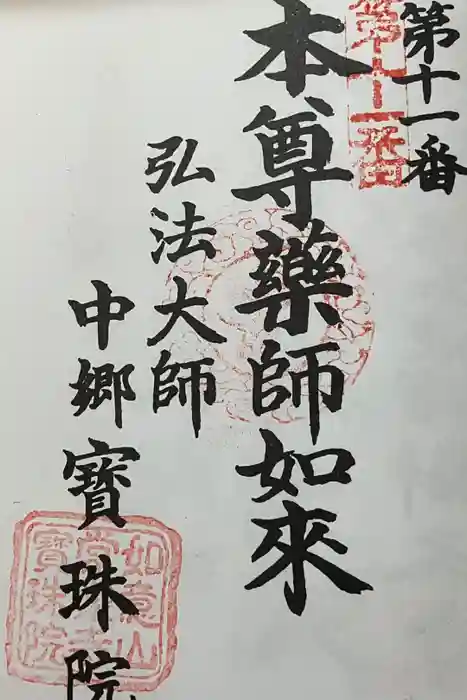 第十一番
第十一番
本尊薬師如來
弘法大師
中郷寳珠院
如意山
寳珠院